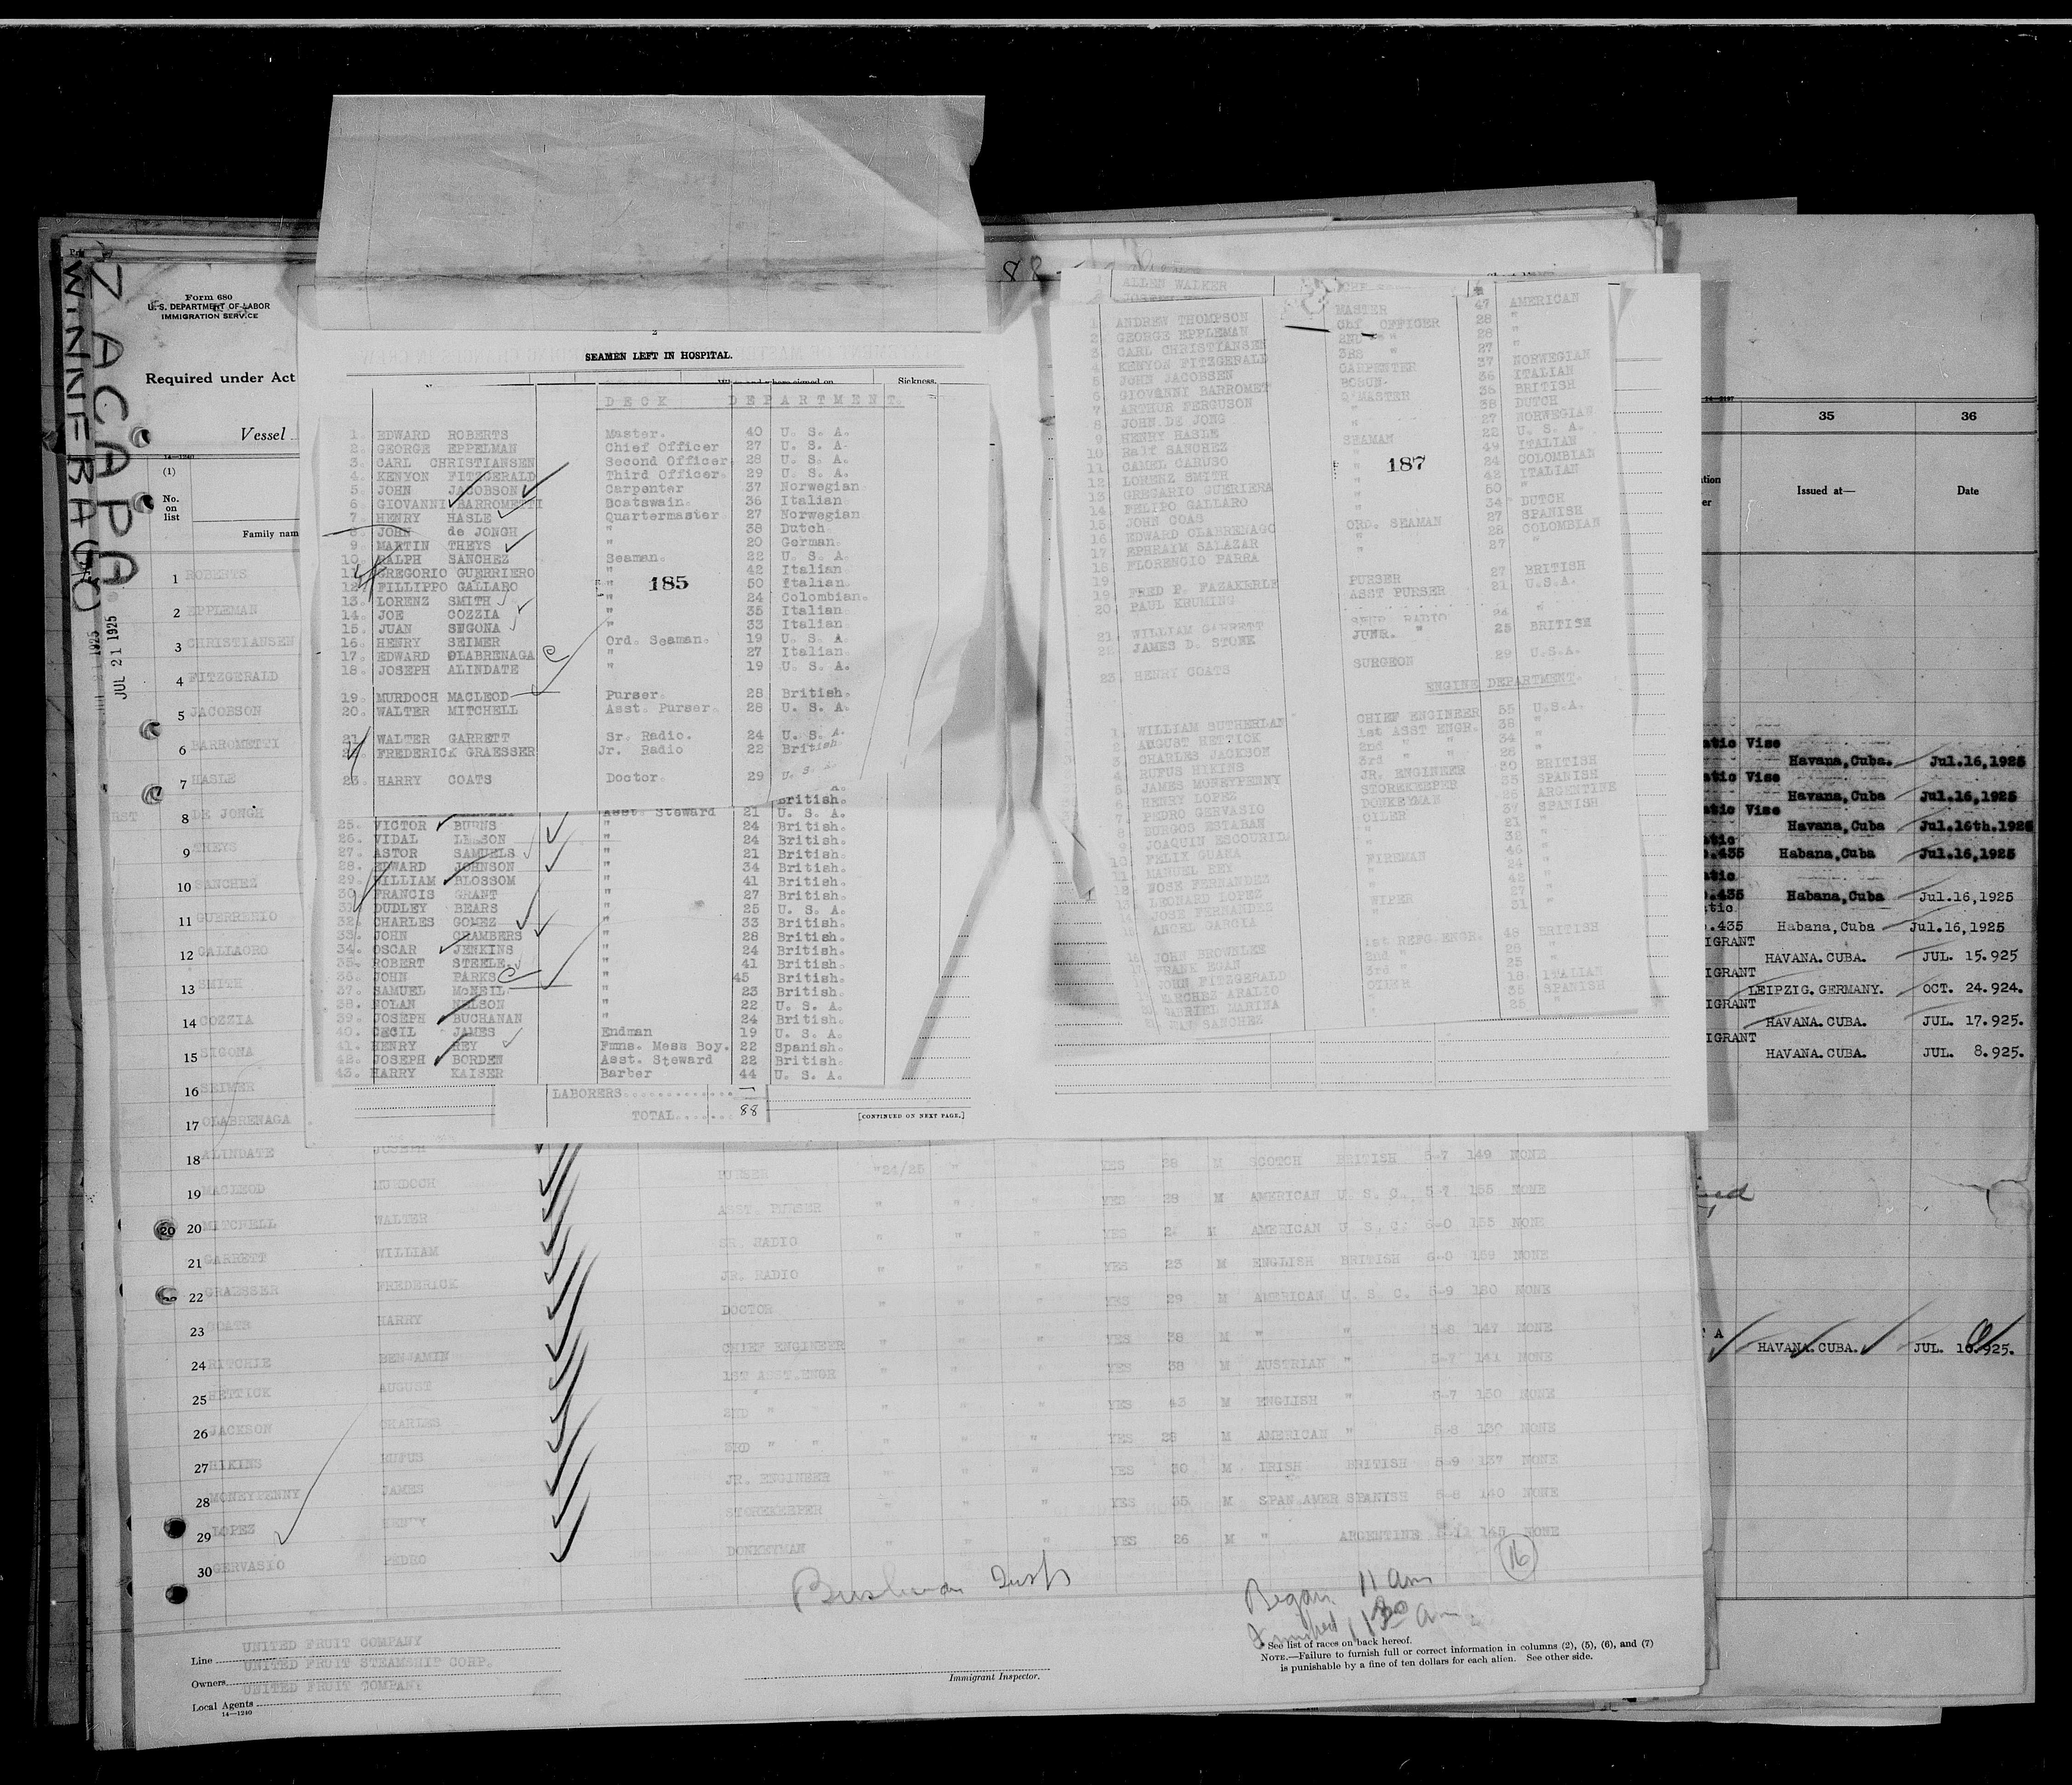 ZACAPA
WINNEBAGO
JUL 21 1925
Form 680
U. S. DEPARTMENT OF LABOR
IMMIGRATION SERVICE
Required under Act
Vessel
14—1240
(1)
No. on list
Family nam
1 ROBERTS
2 EPPLEMAN
3 CHRISTIANSEN
4 FITZGERALD
5 JACOBSON
6 BARROMETTI
7 HASLE
8 DE JONGH
9 THEYS
10 SANCHEZ
11 GUERRERIO
12 GALLAORO
13 SMITH
14 COZZIA
15 SIGONA
16 SEIMER
17 OLABRENAGA
2
SEAMEN LEFT IN HOSPITAL.
Sickness.
DECK DEPARTMENT.
1. EDWARD ROBERTS Master. 40 U. S. A.
2. GEORGE EPPELMAN Chief Officer 27 U. S. A.
3. CARL CHRISTIANSEN Second Officer. 28 U. S. A.
4. KENYON FITZGERALD Third Officer. 29 U. S. A.
5. JOHN JACOBSON Carpenter 37 Norwegian
6. GIOVANNI BARROMETTI Boatswain. 36 Italian
7. HENRY HASLE Quartermaster 27 Norwegian
8. JOHN de JONGH " 38 Dutch
9. MARTIN THEYS " 20 German.
10. RALPH SANCHEZ Seaman. 22 U. S. A.
11. GREGORIO GUERRIERO " 42 Italian
12. FILLIPPO GALLARO " 50 Italian
185
13. LORENZ SMITH " 24 Colombian.
14. JOE COZZIA " 35 Italian
15. JUAN SEGONA " 33 Italian
16. HENRY SEIMER Ord. Seaman. 19 U. S. A.
17. EDWARD OLABRENAGA " 27 Italian.
18. JOSEPH ALINDATE " 19 U. S. A.
19. MURDOCH MACLEOD Purser. 28 British.
20. WALTER MITCHELL Asst. Purser. 28 U. S. A.
21. WALTER GARRETT Sr. Radio. 24 U. S. A.
22. FREDERICK GRAESSER Jr. Radio 22 British
23. HARRY COATS Doctor. 29 U. S. A.
British.
Asst. Steward 21 U. S. A.
25. VICTOR BURNS " 24 British.
26. VIDAL LEESON " 24 British.
27. ASTOR SAMUELS " 21 British.
28. EDWARD JOHNSON " 34 British.
29. WILLIAM BLOSSOM " 41 British.
30. FRANCIS GRANT " 27 British.
31. DUDLEY BEARS " 25 U. S. A.
32. CHARLES GOMEZ " 33 British.
33. JOHN CHAMBERS " 28 British.
34. OSCAR JENKINS " 24 British.
35. ROBERT STEELE. " 41 British.
36. JOHN PARKS " 45 British.
37. SAMUEL McNEIL " 23 British.
38. NOLAN NELSON " 22 U. S. A.
39. JOSEPH BUCHANAN " 24 British.
40. CECIL JAMES Endman 19 U. S. A.
41. HENRY REY Fmns. Mess Boy. 22 Spanish.
42. JOSEPH BORDEN Asst. Steward 22 British.
43. HARRY KAISER Barber 44 U. S. A.
LABORERS
TOTAL 88
[CONTINUED ON NEXT PAGE.]
88
ALLEN WALKER
1 ANDREW THOMPSON MASTER 47 AMERICAN
2 GEORGE EPPLEMAN Chf OFFICER 28 "
3 CARL CHRISTYANSEN 2ND " 28 "
4 KENYON FITZGERALD 3RD " 27 "
5 JOHN JACOBSEN CARPENTER 37 NORWEGIAN
6 GIOVANNI BARROMET BOSUN 36 ITALIAN
7 ARTHUR FERGUSON Q'MASTER 38 BRITISH
8 JOHN DE JONG " 38 DUTCH
9 HENRY HASLE " 27 NORWEGIAN
10 Ralf SANCHEZ SEAMAN 22 U. S. A.
11 CAMEL CARUSO " 49 ITALIAN
187
12 LORENZ SMITH " 24 COLOMBIAN
13 GREGARIO GUERIERA " 42 ITALIAN
14 FELIPO GALLARO " 50 "
15 JOHN COAS " 34 DUTCH
16 EDWARD OLABRENAGO ORD. SEAMAN 27 SPANISH
17 EPHRAIM SALAZAR " 28 COLOMBIAN
18 FLORENCIO PARRA " 27 "
19 FRED P. FAZAKERLE PURSER 27 BRITISH
20 PAUL KRUMING ASST PURSER 21 U.S.A.
21 WILLIAM GARRETT SPUR RADIO 24 "
22 JAMES D. STONE JUNR. " 25 BRITISH
23 HENRY COATS SURGEON 29 U.S.A.
ENGINE DEPARTMENT.
1 WILLIAM SUTHERLAN CHIEF ENGINEER 55 U.S.A.
2 AUGUST HETTICK 1st ASST ENGR. 38 "
3 CHARLES JACKSON 2nd " " 34 "
4 RUFUS HIKINS 3rd " " 28 "
5 JAMES MONEYPENNY JR. ENGINEER 30 BRITISH
6 HENRY LOPEZ STOREKEEPER 35 SPANISH
7 PEDRO GERVASIO DONKEYMAN 26 ARGENTINE
8 BURGOS ESTABAN OILER 37 SPANISH
9 JOAQUIN ESCOURIDA " 21 "
10 FELIX GUANA " 32 "
11 MANUEL REY FIREMAN 46 "
12 NOSE FERNANDEZ " 24 "
13 LEONARD LOPEZ " 42 "
JOSE FERNANDEZ WIPER 27 "
15 ANGEL GARCIA " 31 "
JOHN BROWSLEE 1st REFG ENGR. 48 BRITISH
FRANK EGAN 2nd " 28 "
JOHN FITZGERALD 3rd " 25 "
ARALIO OILER 18 ITALIAN
GABRIEL MARINA " 35 SPANISH
SANCHEZ 25 "
35 36
Issued at— Date
atic Vise
Havana, Cuba. Jul.16,1925
atic Vise
Havana, Cuba Jul.16,1925
atic Vise
Havana, Cuba Jul.16th.1925
.435 Habana, Cuba Jul.16,1925
.435 Habana, Cuba Jul.16,1925
.435 Habana, Cuba Jul.16,1925
IGRANT
HAVANA. CUBA. JUL. 15.925
IGRANT
LEIPZIG. GERMANY. OCT. 24.924.
IGRANT
HAVANA. CUBA. JUL. 17.925.
IGRANT
HAVANA. CUBA. JUL. 8.925.
HAVANA. CUBA. JUL. 10.925.
18 ALINDATE JOSEPH
19 MACLEOD MURDOCH PURSER "24/25 " " YES 28 M SCOTCH BRITISH 5-7 149 NONE
20 MITCHELL WALTER ASST. PURSER " " " YES 28 M AMERICAN U. S. C. 5-7 155 NONE
21 GARRETT WILLIAM SR. RADIO " " " YES 24 M AMERICAN U. S. C. 6-0 155 NONE
22 GRAESSER FREDERICK JR. RADIO " " " YES 23 M ENGLISH BRITISH 6-0 159 NONE
23 COATS HARRY DOCTOR " " " YES 29 M AMERICAN U. S. C. 5-9 180 NONE
24 RITCHIE BENJAMIN CHIEF ENGINEER " " " YES 38 M " " 5-8 147 NONE
25 HETTICK AUGUST 1ST ASST.ENGR " " " YES 38 M AUSTRIAN " 5-7 141 NONE
26 JACKSON CHARLES 2ND " " " " " YES 43 M ENGLISH " 5-7 150 NONE
27 HIKINS RUFUS 3RD " " " " " YES 28 M AMERICAN " 5-8 130 NONE
28 MONEYPENNY JAMES JR. ENGINEER " " " YES 30 M IRISH BRITISH 5-9 137 NONE
29 LOPEZ HENRY STOREKEEPER " " " YES 35 M SPAN.AMER SPANISH 5-8 140 NONE
30 GERVASIO PEDRO DONKEYMAN " " " YES 26 M " ARGENTINE 145 NONE
16
Began 11 am
Finished 11 30 am
Line UNITED FRUIT COMPANY
Owners UNITED FRUIT STEAMSHIP CORP.
Local Agents UNITED FRUIT COMPANY
14—1240
Immigrant Inspector.
* See list of races on back hereof.
NOTE.—Failure to furnish full or correct information in columns (2), (5), (6), and (7)
is punishable by a fine of ten dollars for each alien. See other side.